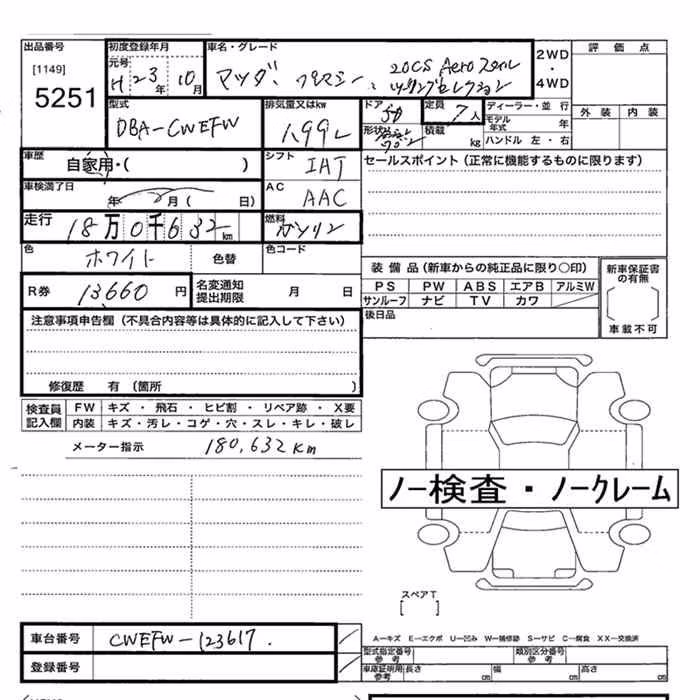 出品番号 初度登録年月 車名・グレード 評価点
[1149] 元号 H 23年 10月 マツダ、プレマシー、20CS Aero スタイル 2WD・4WD
5251 セレクション
型式 排気量又はkw ドア 5D 定員 7人 ディーラー・並 行 外装 内装
DBA-CWEFW 1.99L 形状 ワゴン 積載 kg モデル年式 年
ハンドル 左・右
車歴 自家用・( ) シフト IAT セールスポイント(正常に機能するものに限ります)
車検満了日 年 月( 日) AC AAC
走行 18万0千632km 燃料 ガソリン
色 ホワイト 色替 色コード
装備品(新車からの純正品に限り○印) 新車保証書の有無
R券 13,660円 名変通知提出期限 月 日 PS PW ABS エアB アルミW
サンルーフ ナビ TV カワ
注意事項申告欄(不具合内容等は具体的に記入して下さい) 後日品 車載不可
修復歴 有(箇所 )
検査員記入欄 FW キズ・飛石・ヒビ割・リペア跡・X要
内装 キズ・汚レ・コゲ・穴・スレ・キレ・破レ
メーター指示 180,632km
ノー検査・ノークレーム
スペアT
[ ]
車台番号 CWEFW-123617.
A―キズ E―エクボ U―凹み W―補修跡 S―サビ C―腐食 XX―交換済
型式指定番号参考 類別区分番号参考
登録番号 車庫証明用参考 長さ cm 幅 cm 高さ cm